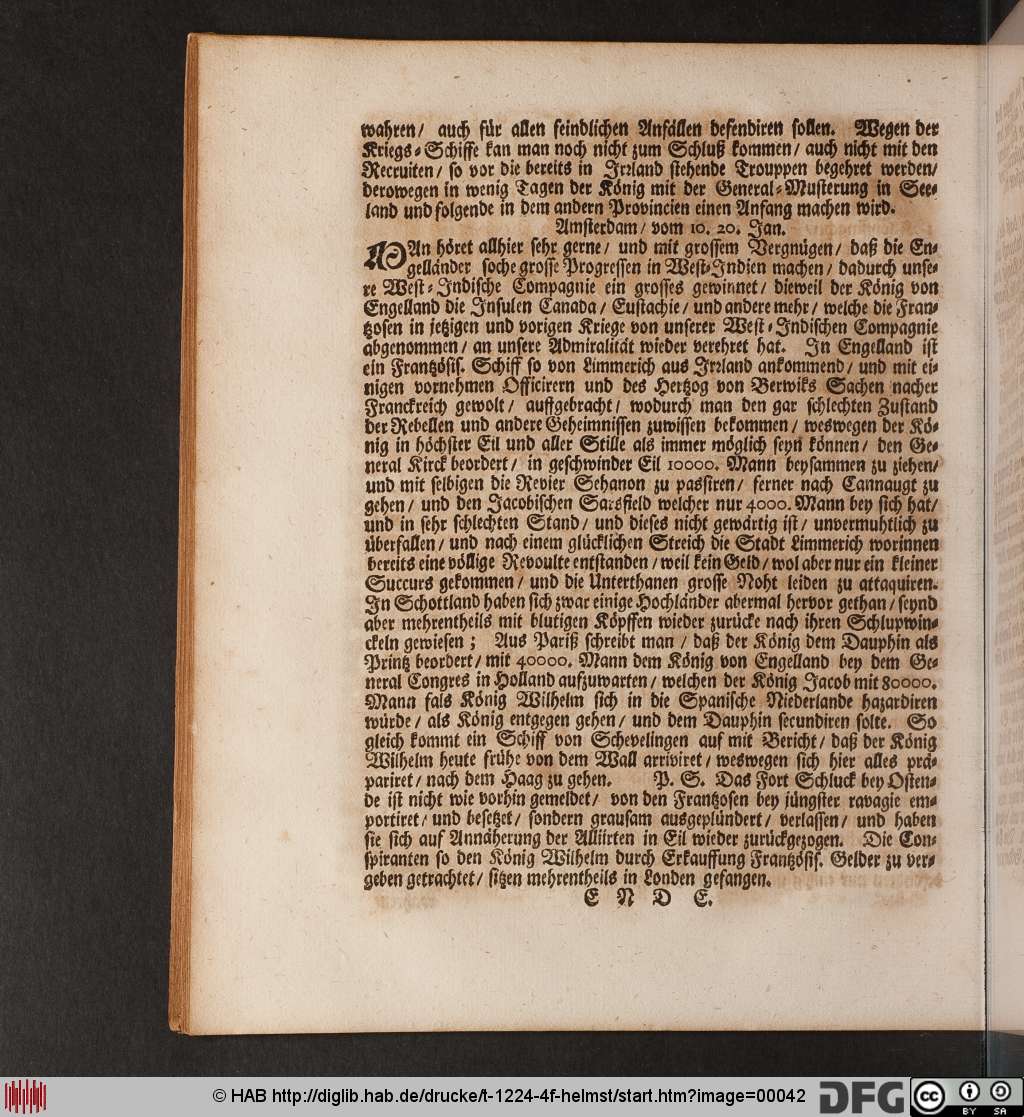 wahren/ auch für allen feindlichen Anfällen defendiren sollen. Wegen der
Kriegs-Schiffe kan man noch nicht zum Schluß kommen/ auch nicht mit den
Recruiten/ so vor die bereits in Irꝛland stehende Trouppen begehret werden/
derowegen in wenig Tagen der König mit der General-Musterung in See-
land und folgende in dem andern Provincien einen Anfang machen wird.
Amsterdam/ vom 10. 20. Jan.
MAn höret allhier sehr gerne/ und mit grossem Vergnügen/ daß die En-
gelländer soche grosse Progressen in West-Indien machen/ dadurch unse-
re West-Indische Compagnie ein grosses gewinnet/ dieweil der König von
Engelland die Insulen Canada/ Eustachie/ und andere mehr/ welche die Fran-
tzosen in jetzigen und vorigen Kriege von unserer West-Indischen Compagnie
abgenommen/ an unsere Admiralität wieder verehret hat. In Engelland ist
ein Frantzösis. Schiff so von Limmerich aus Irꝛland ankommend/ und mit ei-
nigen vornehmen Officirern und des Hertzog von Berwiks Sachen nacher
Franckreich gewolt/ auffgebracht/ wodurch man den gar schlechten Zustand
der Rebellen und andere Geheimnissen zuwissen bekommen/ weswegen der Kö-
nig in höchster Eil und aller Stille als immer möglich seyn können/ den Ge-
neral Kirck beordert/ in geschwinder Eil 10000. Mann beysammen zu ziehen/
und mit selbigen die Revier Sehanon zu passiren/ ferner nach Cannaugt zu
gehen/ und den Jacobischen Sarsfield welcher nur 4000. Mann bey sich hat/
und in sehr schlechten Stand/ und dieses nicht gewärtig ist/ unvermuhtlich zu
überfallen/ und nach einem glücklichen Streich die Stadt Limmerich worinnen
bereits eine völlige Revoulte entstanden/ weil kein Geld/ wol aber nur ein kleiner
Succurs gekommen/ und die Unterthanen grosse Noht leiden zu attaquiren.
In Schottland haben sich zwar einige Hochländer abermal hervor gethan/ seynd
aber mehrentheils mit blutigen Köpffen wieder zurücke nach ihren Schlupwin-
ckeln gewiesen; Aus Pariß schreibt man/ daß der König dem Dauphin als
Printz beordert/ mit 40000. Mann dem König von Engelland bey dem Ge-
neral Congres in Holland aufzuwarten/ welchen der König Jacob mit 80000.
Mann fals König Wilhelm sich in die Spanische Niederlande hazardiren
würde/ als König entgegen gehen/ und dem Dauphin secundiren solte. So
gleich kommt ein Schiff von Schevelingen auf mit Bericht/ daß der König
Wilhelm heute frühe von dem Wall arriviret/ weswegen sich hier alles prä-
pariret/ nach dem Haag zu gehen. P. S. Das Fort Schluck bey Osten-
de ist nicht wie vorhin gemeldet/ von den Frantzosen bey jüngster ravagie em-
portiret/ und besetzet/ sondern grausam ausgeplündert/ verlassen/ und haben
sie sich auf Annäherung der Alliirten in Eil wieder zurückgezogen. Die Con-
spiranten so den König Wilhelm durch Erkauffung Frantzösis. Gelder zu ver-
geben getrachtet/ sitzen mehrentheils in Londen gefangen.
E N D E.
© HAB http://diglib.hab.de/drucke/t-1224-4f-helmst/start.htm?image=00042
DFG
cc
BY SA